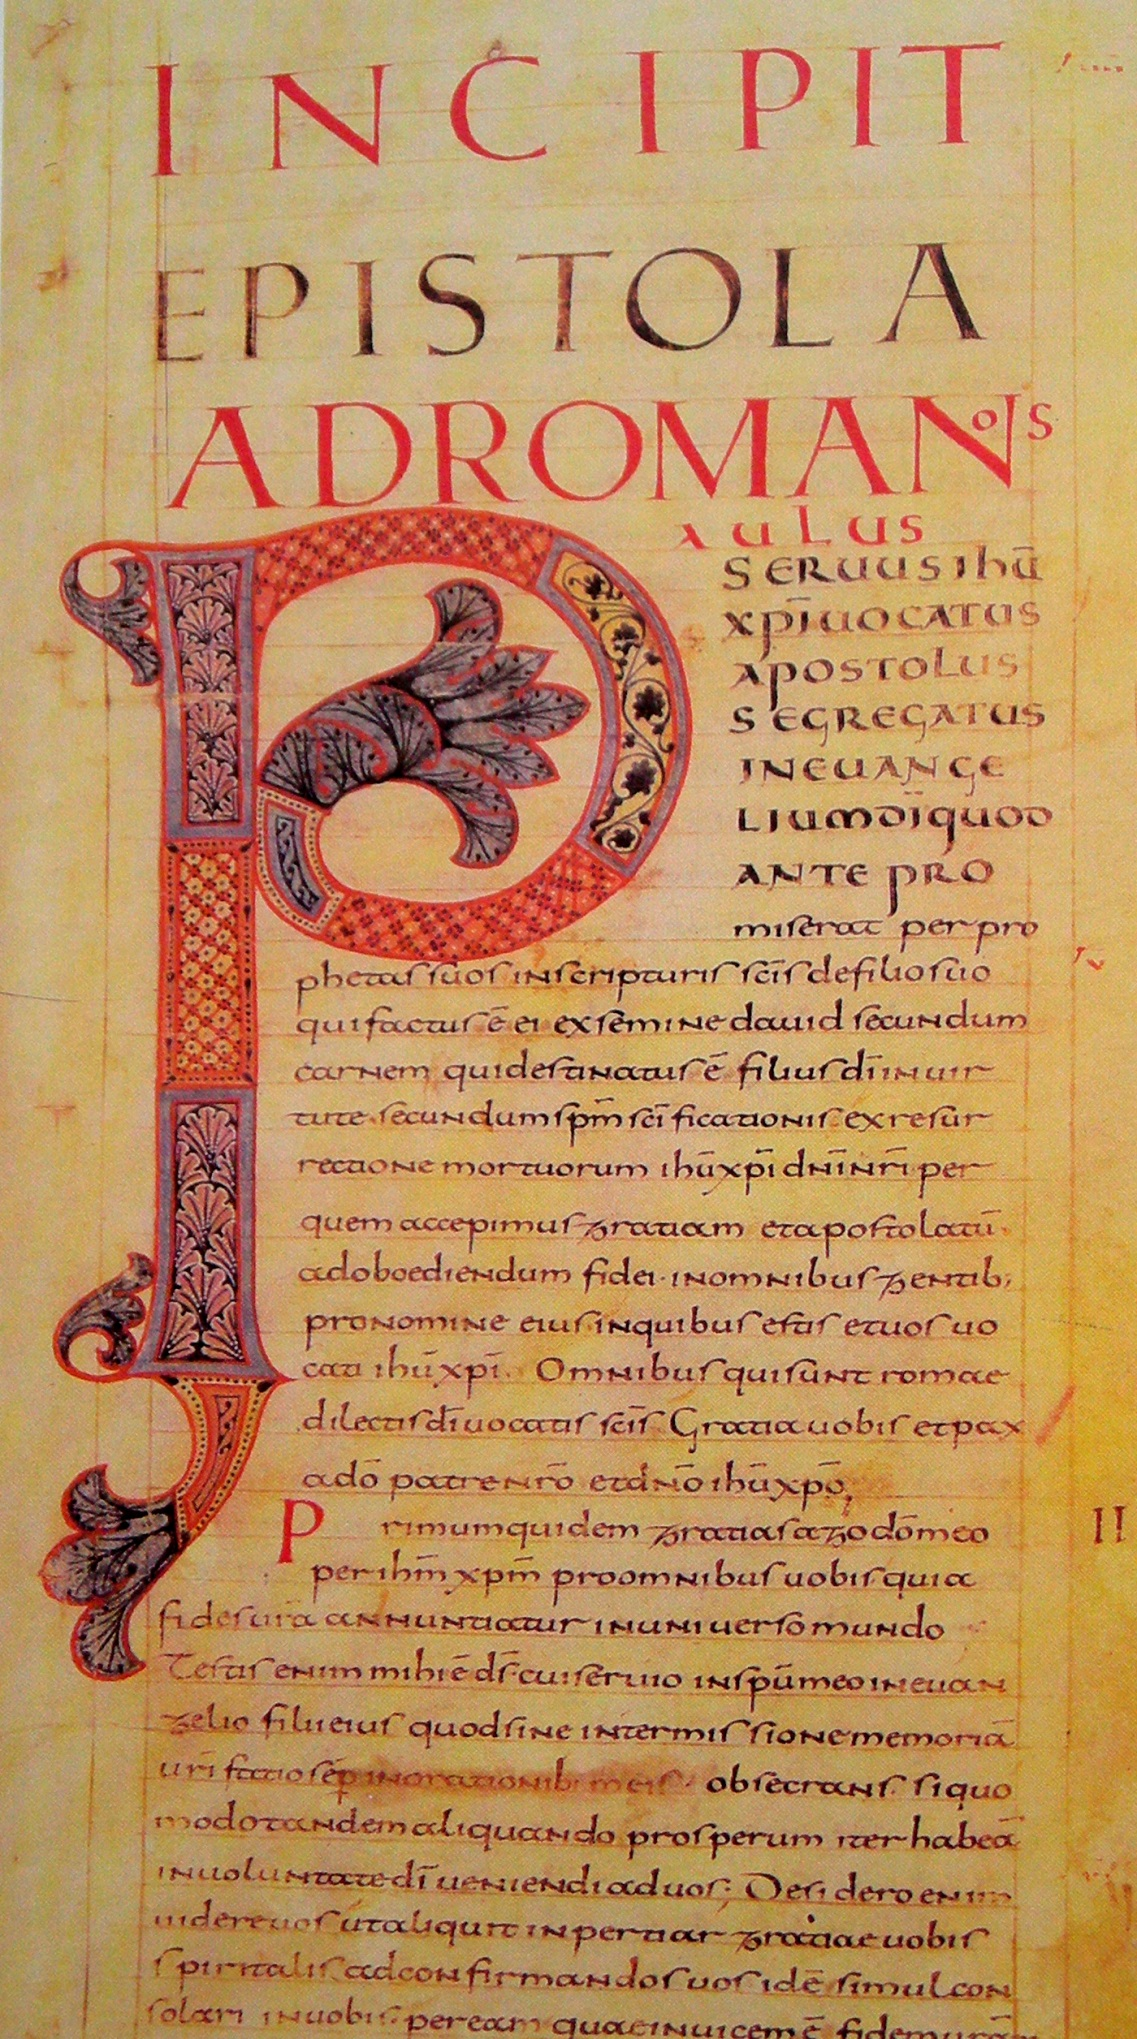 INCIPIT
EPISTOLA
ADROMANOS
PAULUS
SERUUS IHŪ
XPĪ UOCATUS
APOSTOLUS
SEGREGATUS
IN EUANGE
LIUM DĪ QUOD
ANTE PRO
miserat per pro
phetas suos in scripturis scīs de filio suo
qui factus ē ei ex semine dauid secundum
carnem qui destinatus ē filius dī in uir
tute secundum spm̄ scīficationis ex resur
rectione mortuorum ihū xpī dn̄i nr̄i per
quem accepimus gratiam et apostolatū.
ad oboediendum fidei. in omnibus gentib;
pro nomine eius. in quibus estis et uos uo
cati ihū xpī. Omnibus qui sunt romae
dilectis dī uocatis scīs. Gratia uobis et pax
a dō patre nr̄o et dn̄o ihū xpō;
Primum quidem gratias ago dō meo
II
per ihm̄ xpm̄ pro omnibus uobis. quia
fides ur̄a annuntiatur in uniuerso mundo
Testis enim mihi ē ds̄. cui seruio in spū meo in euan
gelio filii eius quod sine intermissione memoriā
uri facio sēp in orationib; meis. obsecrans. si quo
modo tandem aliquando prosperum iter habeā
in uoluntate dī ueniendi ad uos; Desidero enim
uidere uos ut aliquit inpertiar gratiae uobis
spiritalis. ad confirmandos uos id ē. simul con
solari in uobis. per eam quae inuicem ē fidem urām